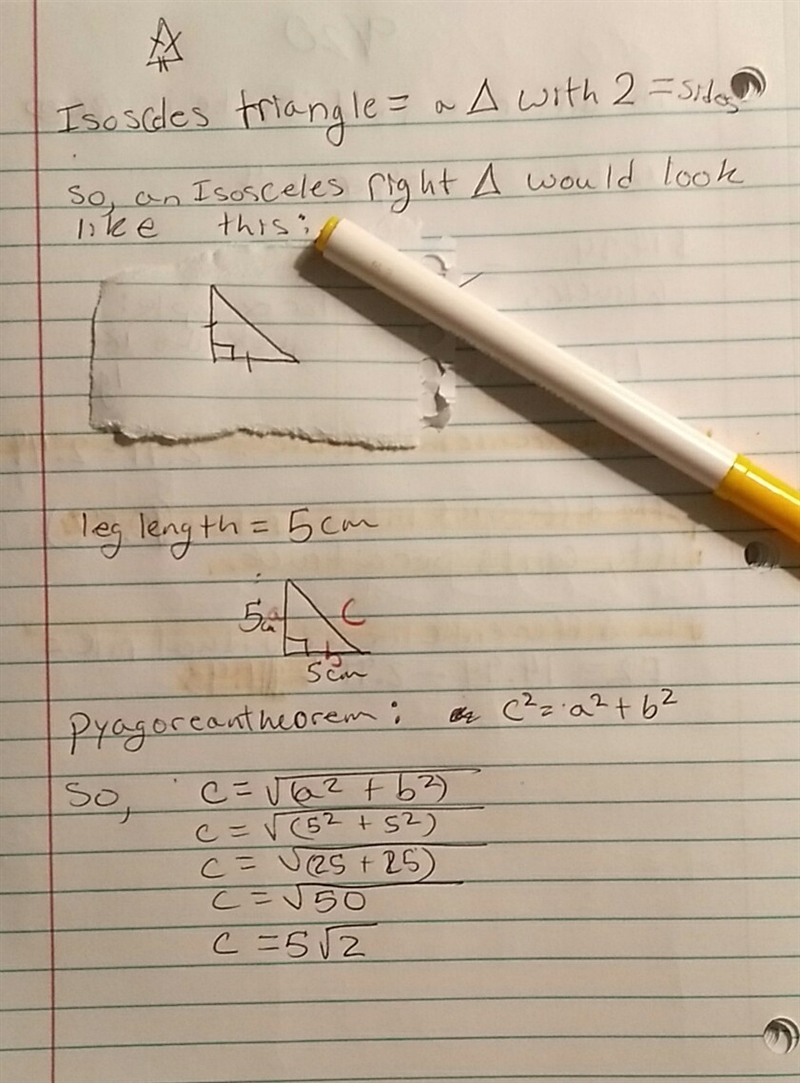 Isosceles triangle = a Δ with 2 = sides
so, an Isosceles right Δ would look
like this:
leg length = 5cm
5 a
C
b
5cm
Pyagoreantheorem: c² = a² + b²
So, c = √(a² + b²)
c = √(5² + 5²)
c = √(25 + 25)
c = √50
c = 5√2